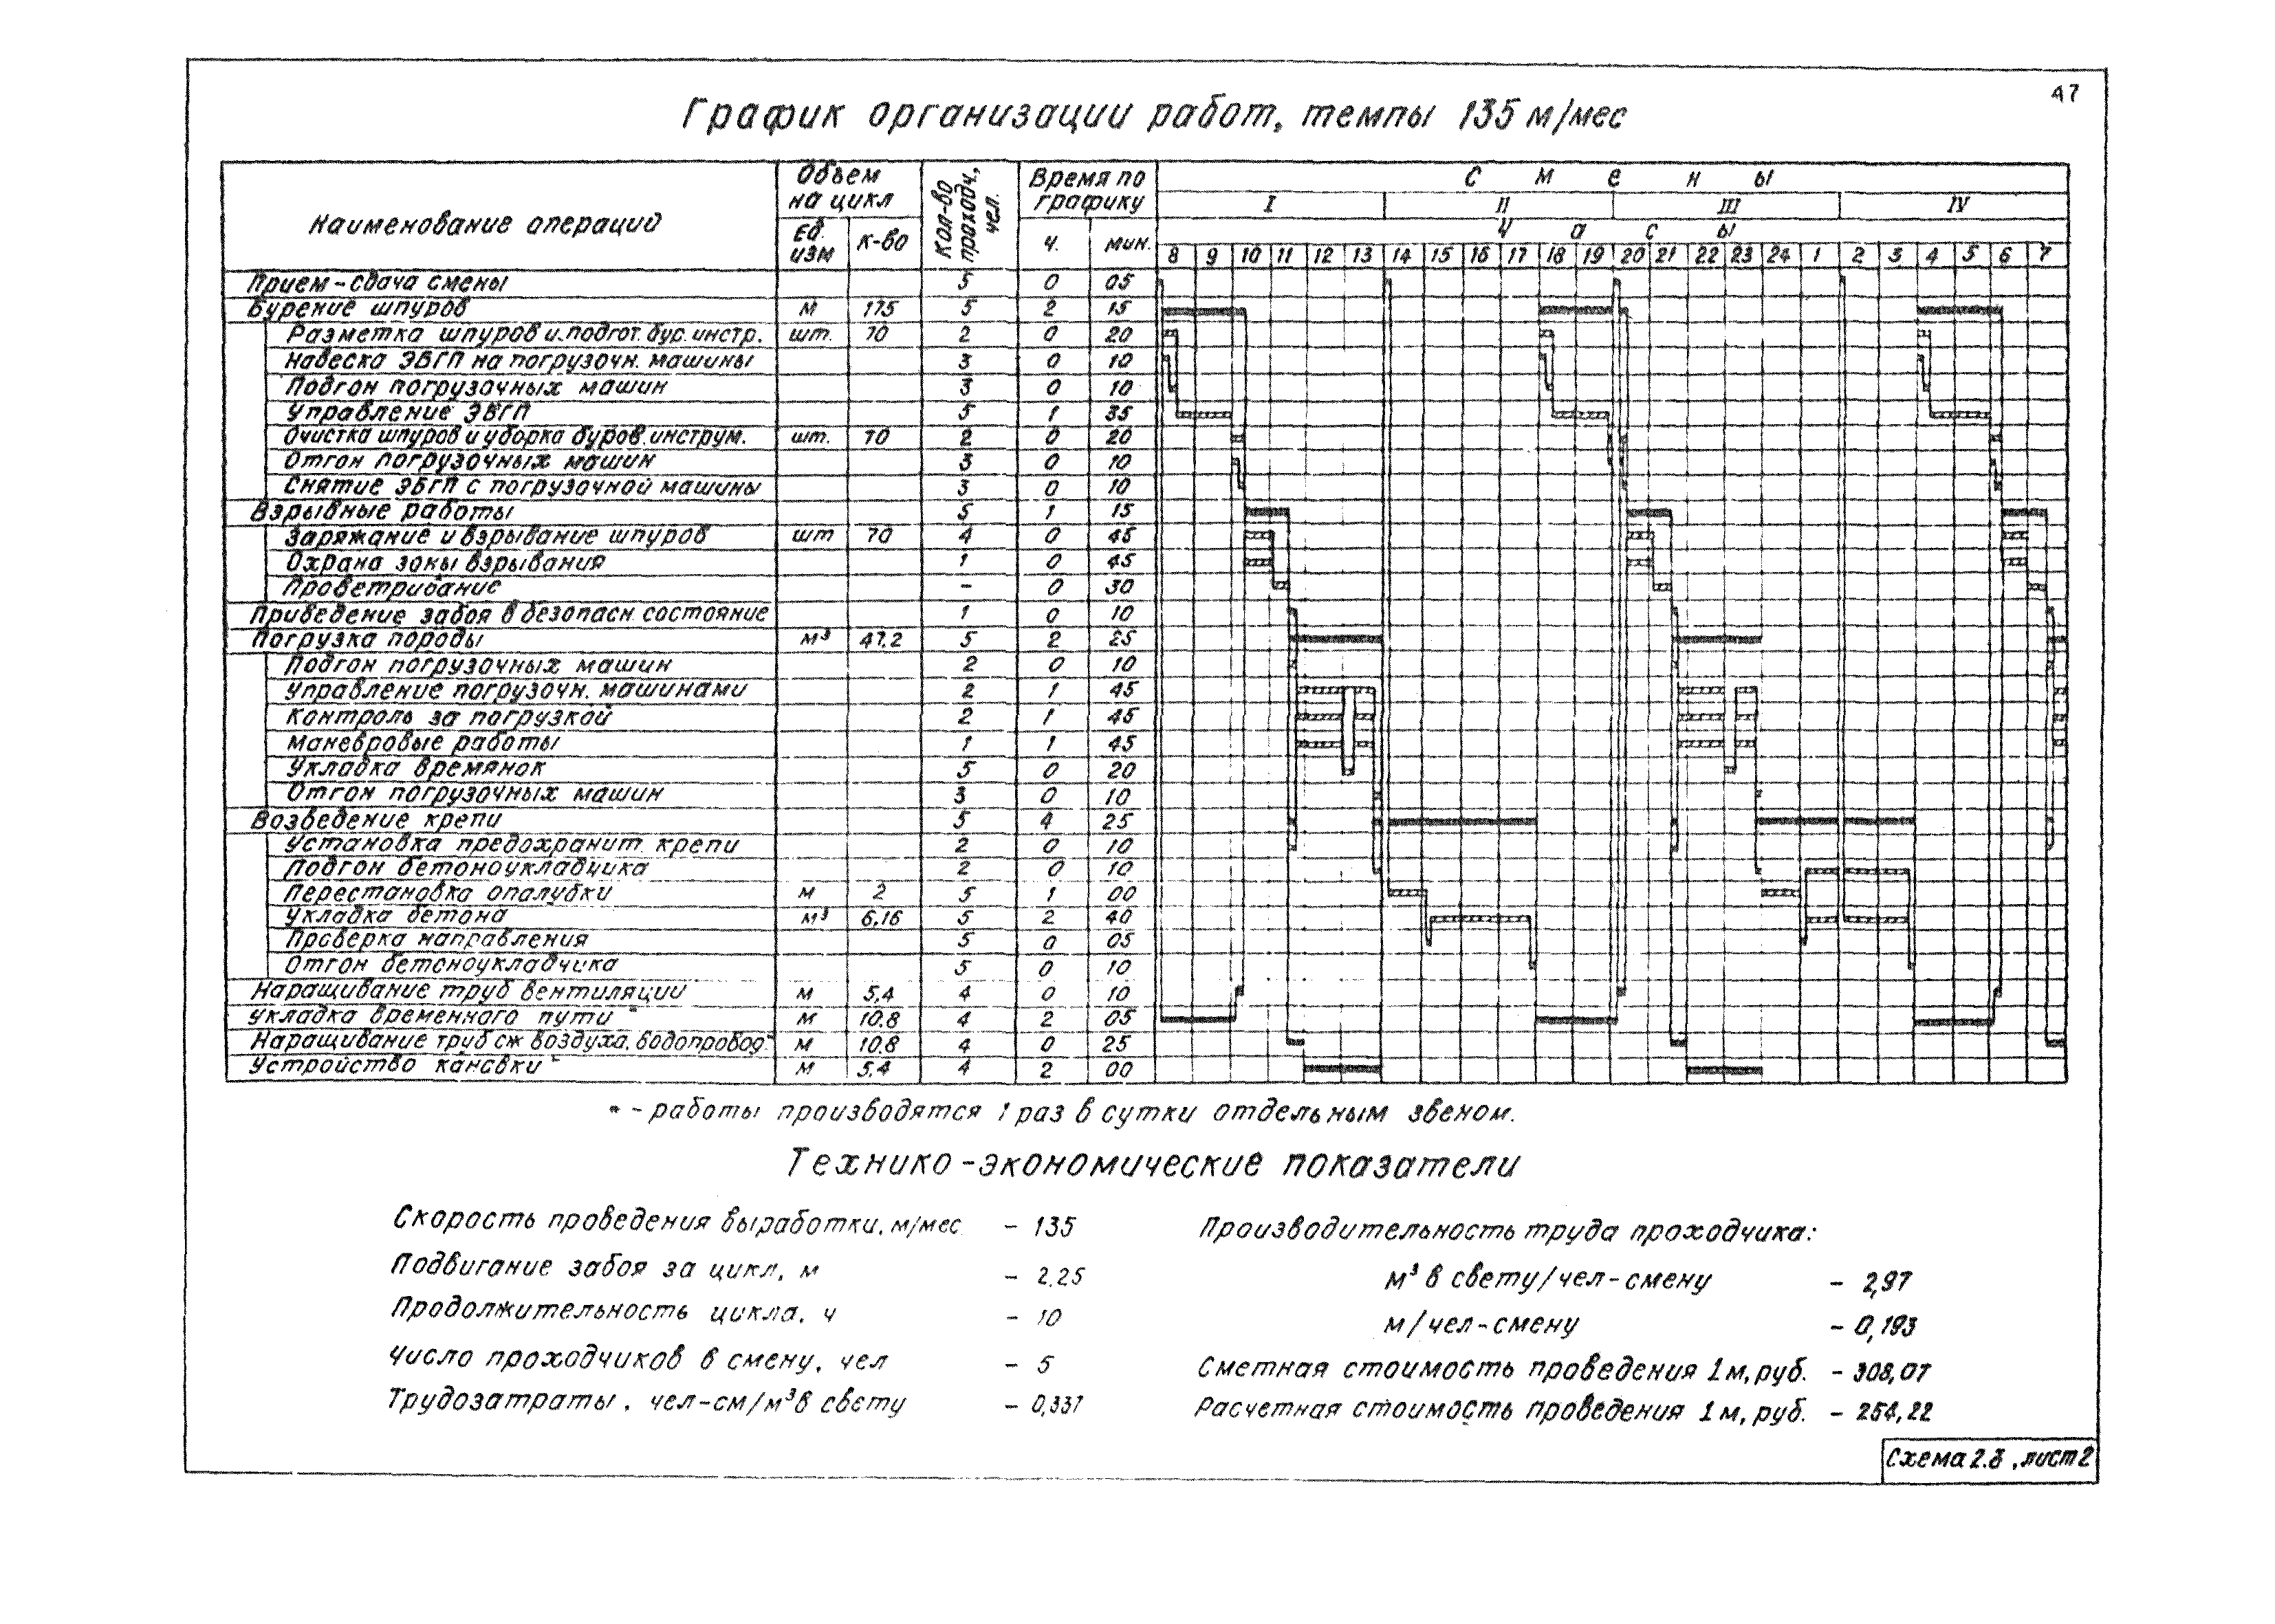 47
График организации работ, темпы 135 м/мес
Наименование операций
Объем на цикл
Ед. изм
к-во
Кол-во проходч, чел.
Время по графику
ч.
мин.
Смены
I II III IV
Часы
8 9 10 11 12 13 14 15 16 17 18 19 20 21 22 23 24 1 2 3 4 5 6 7
Прием-сдача смены 5 0 05
Бурение шпуров м 175 5 2 15
Разметка шпуров и подгот. бур. инстр. шт. 70 2 0 20
Навеска ЭБГП на погрузочн. машины 3 0 10
Подгон погрузочных машин 3 0 10
Управление ЭБГП 5 1 35
Очистка шпуров и уборка буров. инструм. шт. 70 2 0 20
Отгон погрузочных машин 3 0 10
Снятие ЭБГП с погрузочной машины 3 0 10
Взрывные работы 5 1 15
Заряжание и взрывание шпуров шт 70 4 0 45
Охрана зоны взрывания 1 0 45
Проветривание – 0 30
Приведение забоя в безопасн состояние 1 0 10
Погрузка породы м³ 47.2 5 2 25
Подгон погрузочных машин 2 0 10
Управление погрузочн. машинами 2 1 45
Контроль за погрузкой 2 1 45
Маневровые работы 1 1 45
Укладка времянок 5 0 20
Отгон погрузочных машин 3 0 10
Возведение крепи 5 4 25
Установка предохранит. крепи 2 0 10
Подгон бетоноукладчика 2 0 10
Перестановка опалубки м 2 5 1 00
Укладка бетона м³ 6,16 5 2 40
Проверка направления 5 0 05
Отгон бетоноукладчика 5 0 10
Наращивание труб вентиляции м 5,4 4 0 10
Укладка временного пути * м 10,8 4 2 05
Наращивание труб сж воздуха, водопровод.* м 10,8 4 0 25
Устройство канавки * м 5,4 4 2 00
* - работы производятся 1 раз в сутки отдельным звеном.
Технико-экономические показатели
Скорость проведения выработки, м/мес – 135
Подвигание забоя за цикл, м – 2,25
Продолжительность цикла, ч – 10
Число проходчиков в смену, чел – 5
Трудозатраты, чел-см/м³ в свету – 0,337
Производительность труда проходчика:
м³ в свету/чел-смену – 2,97
м/чел-смену – 0,193
Сметная стоимость проведения 1 м, руб. – 308,07
Расчетная стоимость проведения 1 м, руб. – 254,22
Схема 2.8, лист 2